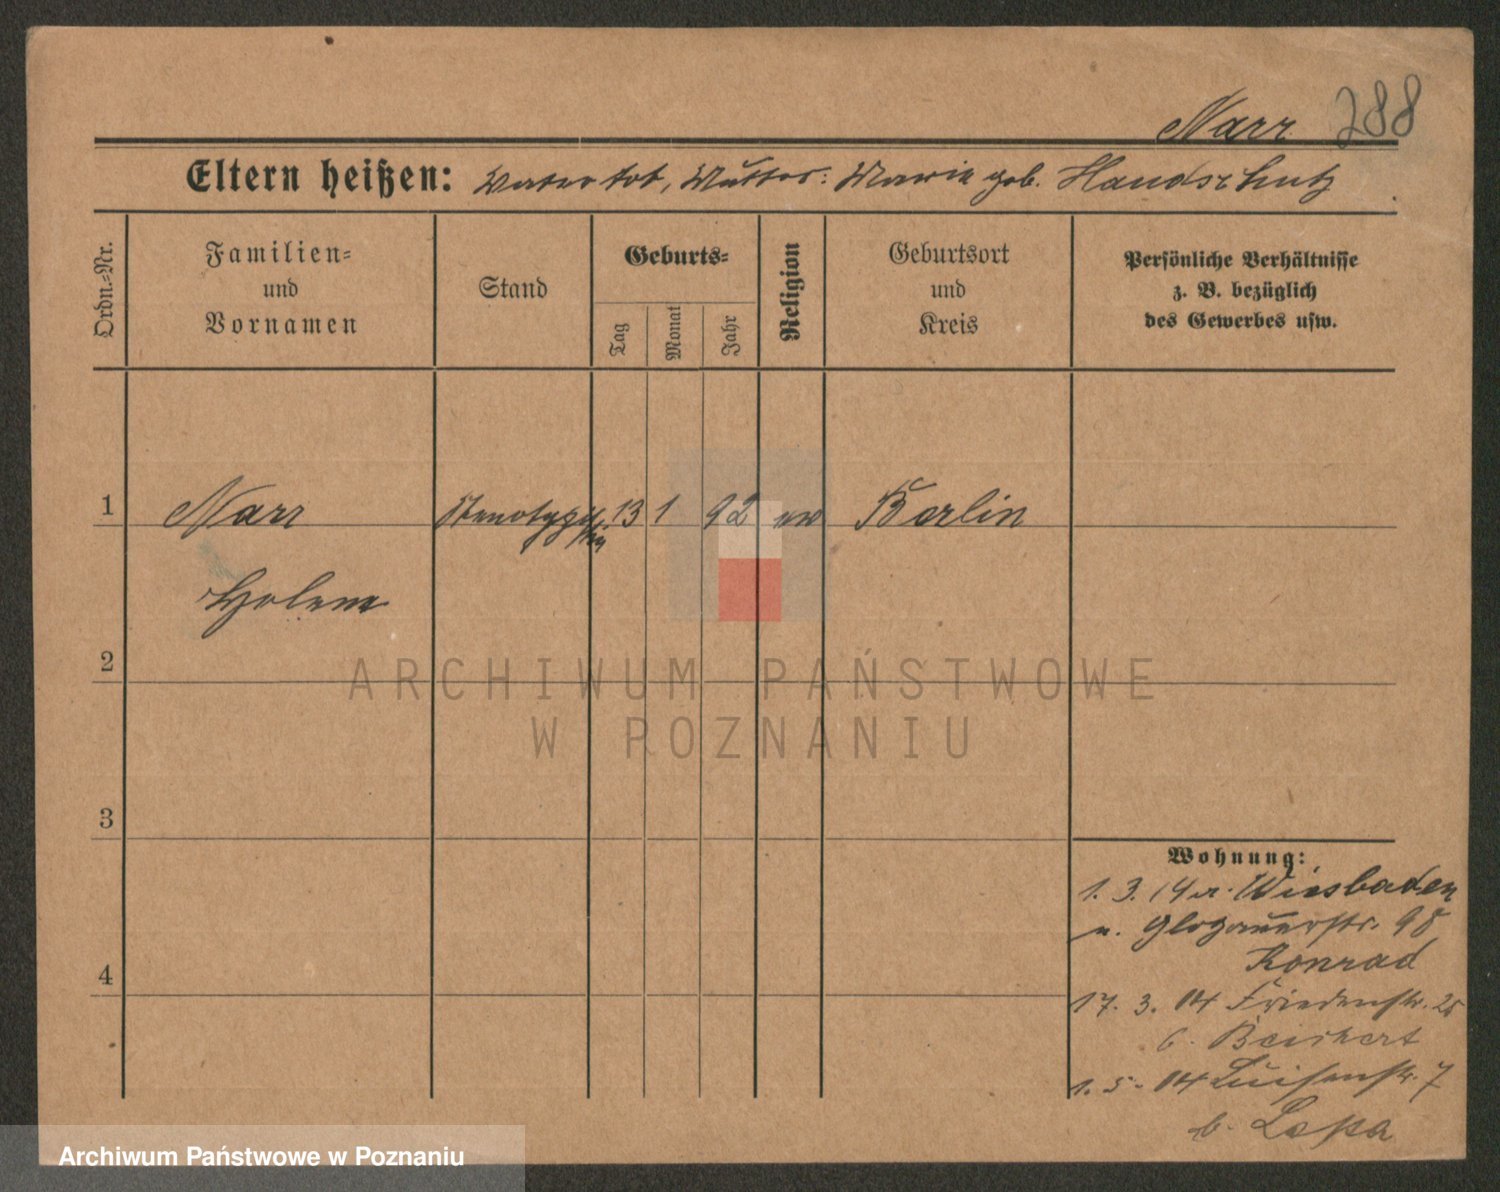 Narr 288
Eltern heißen: Vater tot, Mutter: Marie geb. Handschutz
Ordn.-Nr.
Familien- und Vornamen
Stand
Geburts-
Tag
Monat
Jahr
Religion
Geburtsort und Kreis
Persönliche Verhältnisse
z. B. bezüglich
des Gewerbes usw.
1 Narr Stenotypistin 13 1 92 ev Berlin
Helene
2
3
4
Wohnung:
1. 3. 14 v. Wiesbaden
n. Glogauerstr. 98
Konrad
17. 3. 14 Friedenstr.
b. Beichert
1. 5. 14 Luisenstr. 7
b.
ARCHIWUM PAŃSTWOWE
W POZNANIU
Archiwum Państwowe w Poznaniu